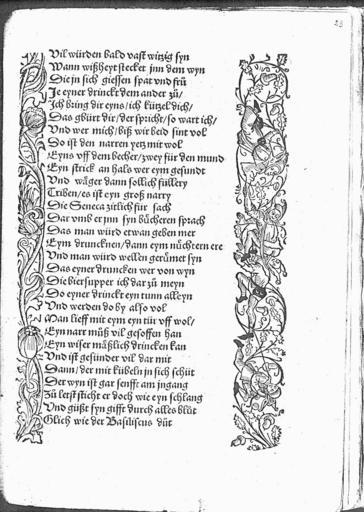 23
Vil würden bald vast witzig syn
Wann wißheyt stecket jnn dem wyn
Die jn sich giessen spat vnd frü
Je eyner drinckt dem ander zü/
Jch bring dir eyns/ich kützel dich/
Das gbürt dir/der spricht/so wart ich/
Vnd wer mich/biß wir beid sint vol
Do ist den narren yetz mit wol
Eyns vff dem becher/zwey für den mund
Eyn strick an hals wer eym gesundt
Vnd wäger dann sollich füllery
Triben/es ist eyn groß narry
Die Seneca zitlich für sach
Dar vmb er jnn syn bücheren sprach
Das man würd etwan geben mer
Eym druncknen/dann eym nüchtern ere
Vnd man würd wellen gerümet syn
Das eyner druncken wer von wyn
Die biersupper ich dar zü meyn
Do eyner drinckt eyn tunn alleyn
Vnd werden do by also vol
Man lieff mit eym eyn tür vff wol/
Eyn narr müß vil gesoffen han
Eyn wiser mäßlich drincken kan
Vnd ist gesünder vil dar mit
Dann/der mit kübeln jn sich schüt
Der wyn ist gar senfft am jngang
Zü letst sticht er doch wie eyn schlang
Vnd güßt syn gifft durch alles blüt
Glich wie der Basiliscus düt